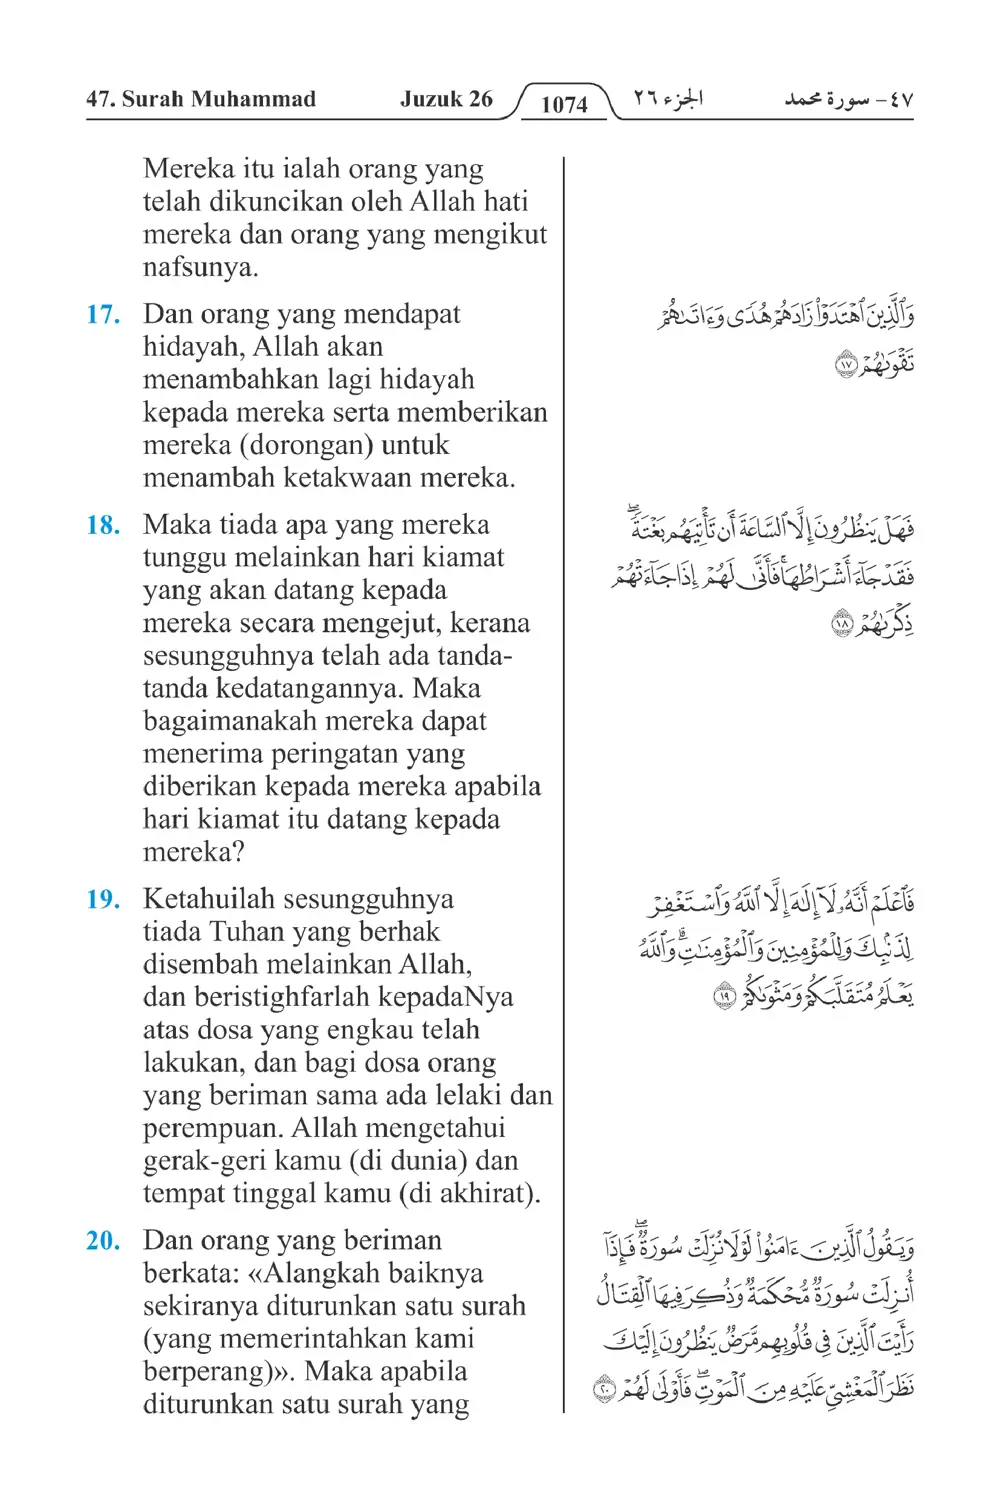 47. Surah Muhammad Juzuk 26 1074 الجزء ٢٦ ٤٧ - سورة محمد
Mereka itu ialah orang yang
telah dikuncikan oleh Allah hati
mereka dan orang yang mengikut
nafsunya.
17. Dan orang yang mendapat
hidayah, Allah akan
menambahkan lagi hidayah
kepada mereka serta memberikan
mereka (dorongan) untuk
menambah ketakwaan mereka.
18. Maka tiada apa yang mereka
tunggu melainkan hari kiamat
yang akan datang kepada
mereka secara mengejut, kerana
sesungguhnya telah ada tanda-
tanda kedatangannya. Maka
bagaimanakah mereka dapat
menerima peringatan yang
diberikan kepada mereka apabila
hari kiamat itu datang kepada
mereka?
19. Ketahuilah sesungguhnya
tiada Tuhan yang berhak
disembah melainkan Allah,
dan beristighfarlah kepadaNya
atas dosa yang engkau telah
lakukan, dan bagi dosa orang
yang beriman sama ada lelaki dan
perempuan. Allah mengetahui
gerak-geri kamu (di dunia) dan
tempat tinggal kamu (di akhirat).
20. Dan orang yang beriman
berkata: «Alangkah baiknya
sekiranya diturunkan satu surah
(yang memerintahkan kami
berperang)». Maka apabila
diturunkan satu surah yang
وَٱلَّذِينَ ٱهْتَدَوْا۟ زَادَهُمْ هُدًى وَءَاتَىٰهُمْ
تَقْوَىٰهُمْ ١٧
فَهَلْ يَنظُرُونَ إِلَّا ٱلسَّاعَةَ أَن تَأْتِيَهُم بَغْتَةً ۖ
فَقَدْ جَآءَ أَشْرَاطُهَا ۚ فَأَنَّىٰ لَهُمْ إِذَا جَآءَتْهُمْ
ذِكْرَىٰهُمْ ١٨
فَٱعْلَمْ أَنَّهُۥ لَآ إِلَٰهَ إِلَّا ٱللَّهُ وَٱسْتَغْفِرْ
لِذَنۢبِكَ وَلِلْمُؤْمِنِينَ وَٱلْمُؤْمِنَٰتِ ۗ وَٱللَّهُ
يَعْلَمُ مُتَقَلَّبَكُمْ وَمَثْوَىٰكُمْ ١٩
وَيَقُولُ ٱلَّذِينَ ءَامَنُوا۟ لَوْلَا نُزِّلَتْ سُورَةٌ ۖ فَإِذَآ
أُنزِلَتْ سُورَةٌ مُّحْكَمَةٌ وَذُكِرَ فِيهَا ٱلْقِتَالُ
رَأَيْتَ ٱلَّذِينَ فِى قُلُوبِهِم مَّرَضٌ يَنظُرُونَ إِلَيْكَ
نَظَرَ ٱلْمَغْشِىِّ عَلَيْهِ مِنَ ٱلْمَوْتِ ۖ فَأَوْلَىٰ لَهُمْ ٢٠